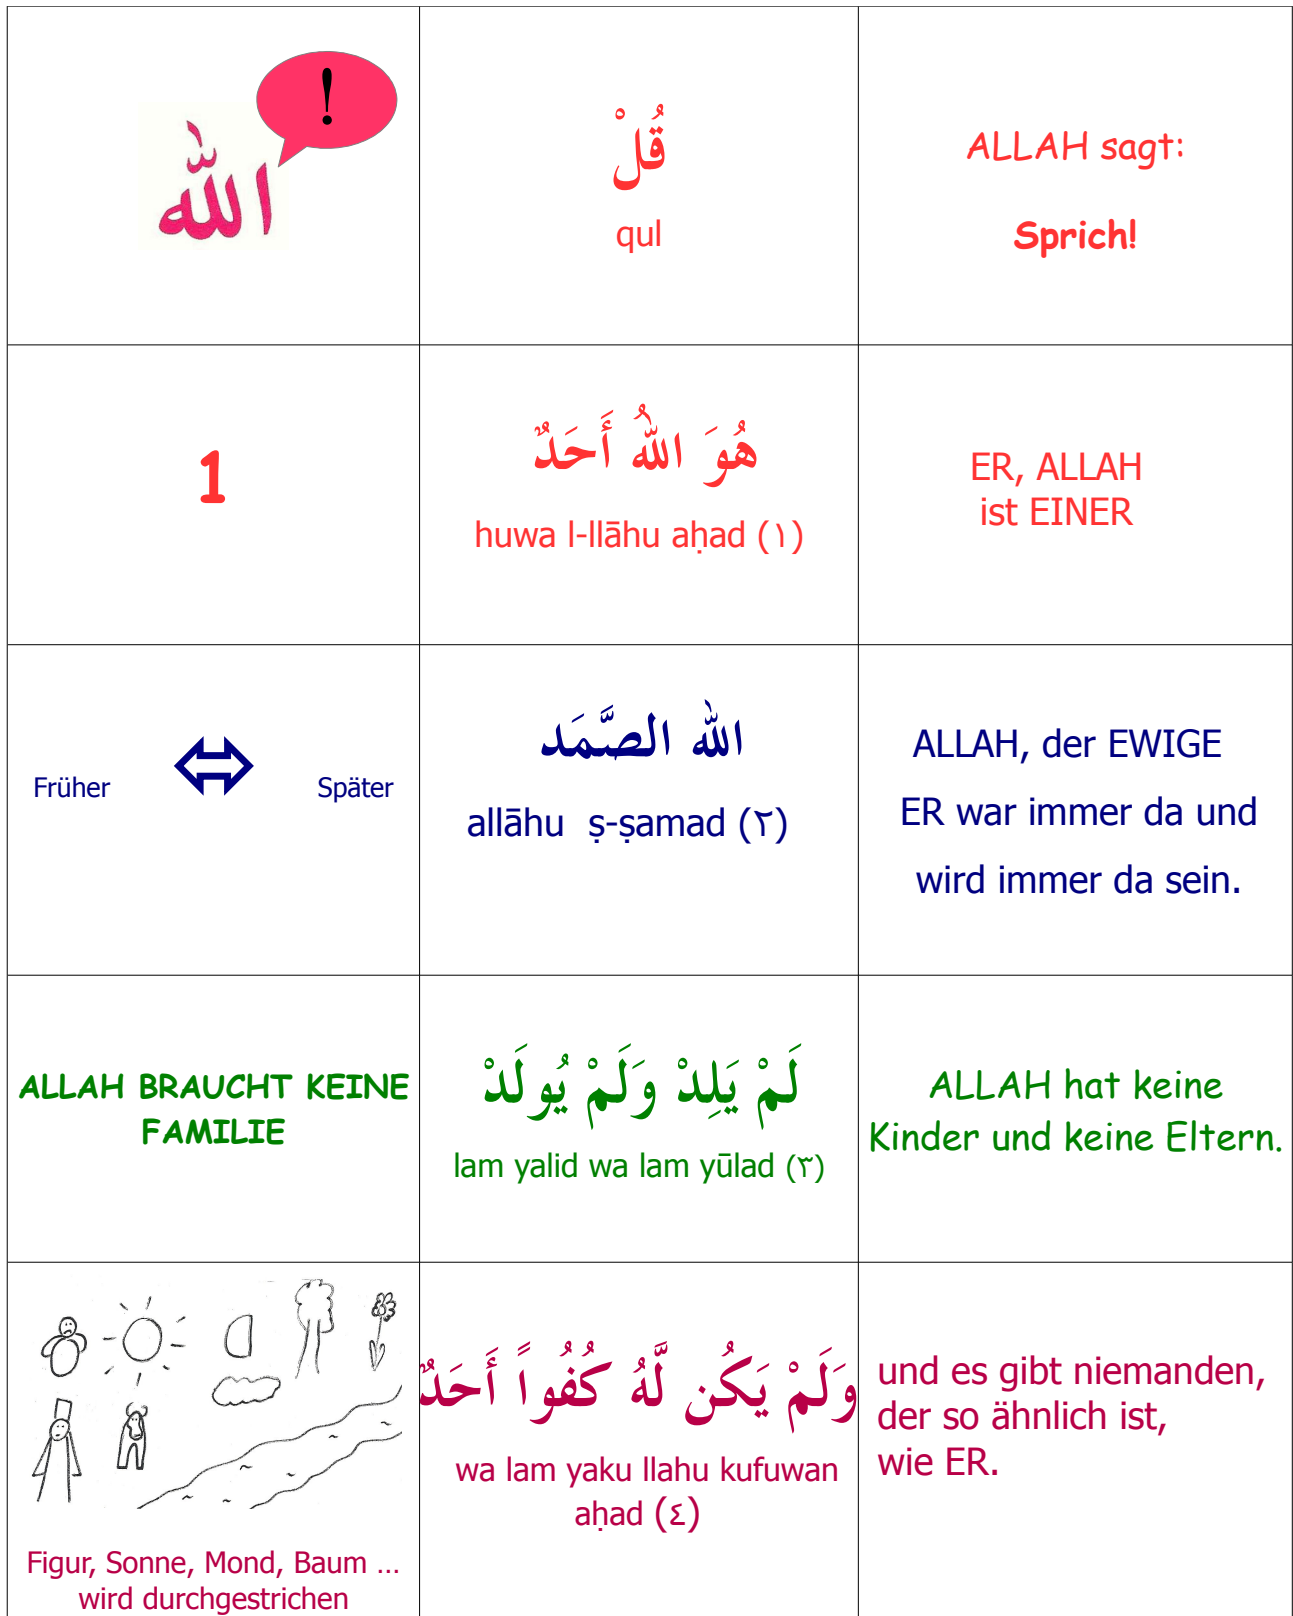 !
الله
قُلْ
qul
ALLAH sagt:
Sprich!
1
هُوَ اللهُ أَحَدٌ
huwa l-llāhu aḥad (١)
ER, ALLAH
ist EINER
Früher
Später
الله الصَّمَد
allāhu ṣ-ṣamad (٢)
ALLAH, der EWIGE
ER war immer da und
wird immer da sein.
ALLAH BRAUCHT KEINE
FAMILIE
لَمْ يَلِدْ وَلَمْ يُولَدْ
lam yalid wa lam yūlad (٣)
ALLAH hat keine
Kinder und keine Eltern.
Figur, Sonne, Mond, Baum ...
wird durchgestrichen
وَلَمْ يَكُن لَّهُ كُفُواً أَحَدٌ
wa lam yaku llahu kufuwan
aḥad (٤)
und es gibt niemanden,
der so ähnlich ist,
wie ER.